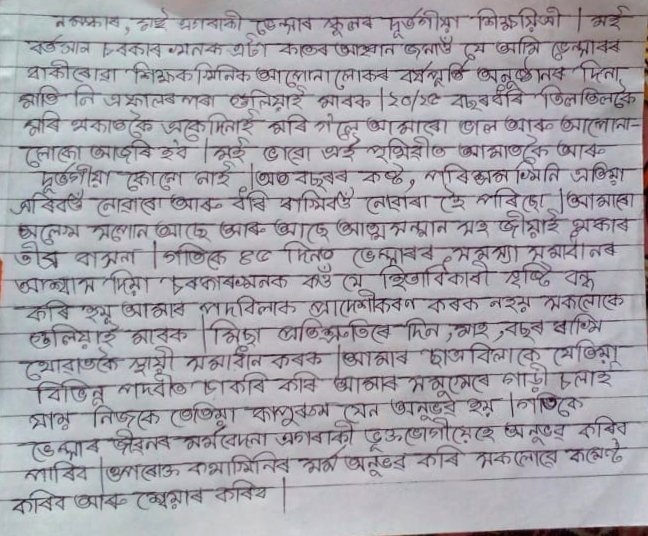 নমস্কাৰ, মই এগৰাকী ভেন্সাৰ স্কুলৰ দূৰ্ভগীয়া শিক্ষয়িত্ৰী | মই
বৰ্তমান চৰকাৰ খনক এটা কাতৰ আহ্বান জনাওঁ যে আমি ভেন্সাৰৰ
বাকীৰোৱা শিক্ষক খিনিক আপোনালোকৰ বৰ্ষপূৰ্তি অনুষ্ঠানৰ দিনা
মাতি নি এফালৰ পৰা গুলিয়াই মাৰক | ২০/২৫ বছৰ ধৰি তিলতিলকৈ
মৰি থকাতকৈ একেদিনাই মৰি গ'লে আমাৰো ভাল আৰু আপোনা-
লোকো আজৰি হব | মই ভাবো এই পৃথিৱীত আমাতকৈ আৰু
দূৰ্ভগীয়া কোনো নাই | অত বছৰৰ কষ্ট, পৰিশ্ৰম খিনি এতিয়া
এৰিবওঁ নোৱাৰো আৰু ধৰি ৰাখিবওঁ নোৱাৰা হৈ পৰিছো | আমাৰো
অলেখ সপোন আছে আৰু আছে আত্মসন্মান সহ জীয়াই থকাৰ
তীব্ৰ বাসনা | গতিকে ৪৫ দিনত ভেন্সাৰৰ সমস্যা সমাধানৰ
আশ্বাস দিয়া চৰকাৰখনক কওঁ যে হিতাধিকাৰী সৃষ্টি বন্ধ
কৰি হয় আমাৰ পদবিলাক প্ৰাদেশীকৰণ কৰক নহয় সকলোকে
গুলিয়াই মাৰক | মিছা প্ৰতিশ্ৰুতিৰে দিন, মাহ, বছৰ বাগি
যোৱাতকৈ স্থায়ী সমাধান কৰক | আমাৰ ছাত্ৰবিলাকে যেতিয়া
বিভিন্ন পদবীত চাকৰি কৰি আমাৰ সমুখেৰে গাড়ী চলাই
যায় নিজকে তেতিয়া কাপুৰুষ যেন অনুভৱ হয় | গতিকে
ভেন্সাৰ জীৱনৰ মৰ্মবেদনা এগৰাকী ভুক্তভোগীয়েহে অনুভৱ কৰিব
পাৰিব | ওপৰোক্ত কথাখিনিৰ মৰ্ম অনুভৱ কৰি সকলোৱে কমেণ্ট
কৰিব আৰু শ্বেয়াৰ কৰিব |